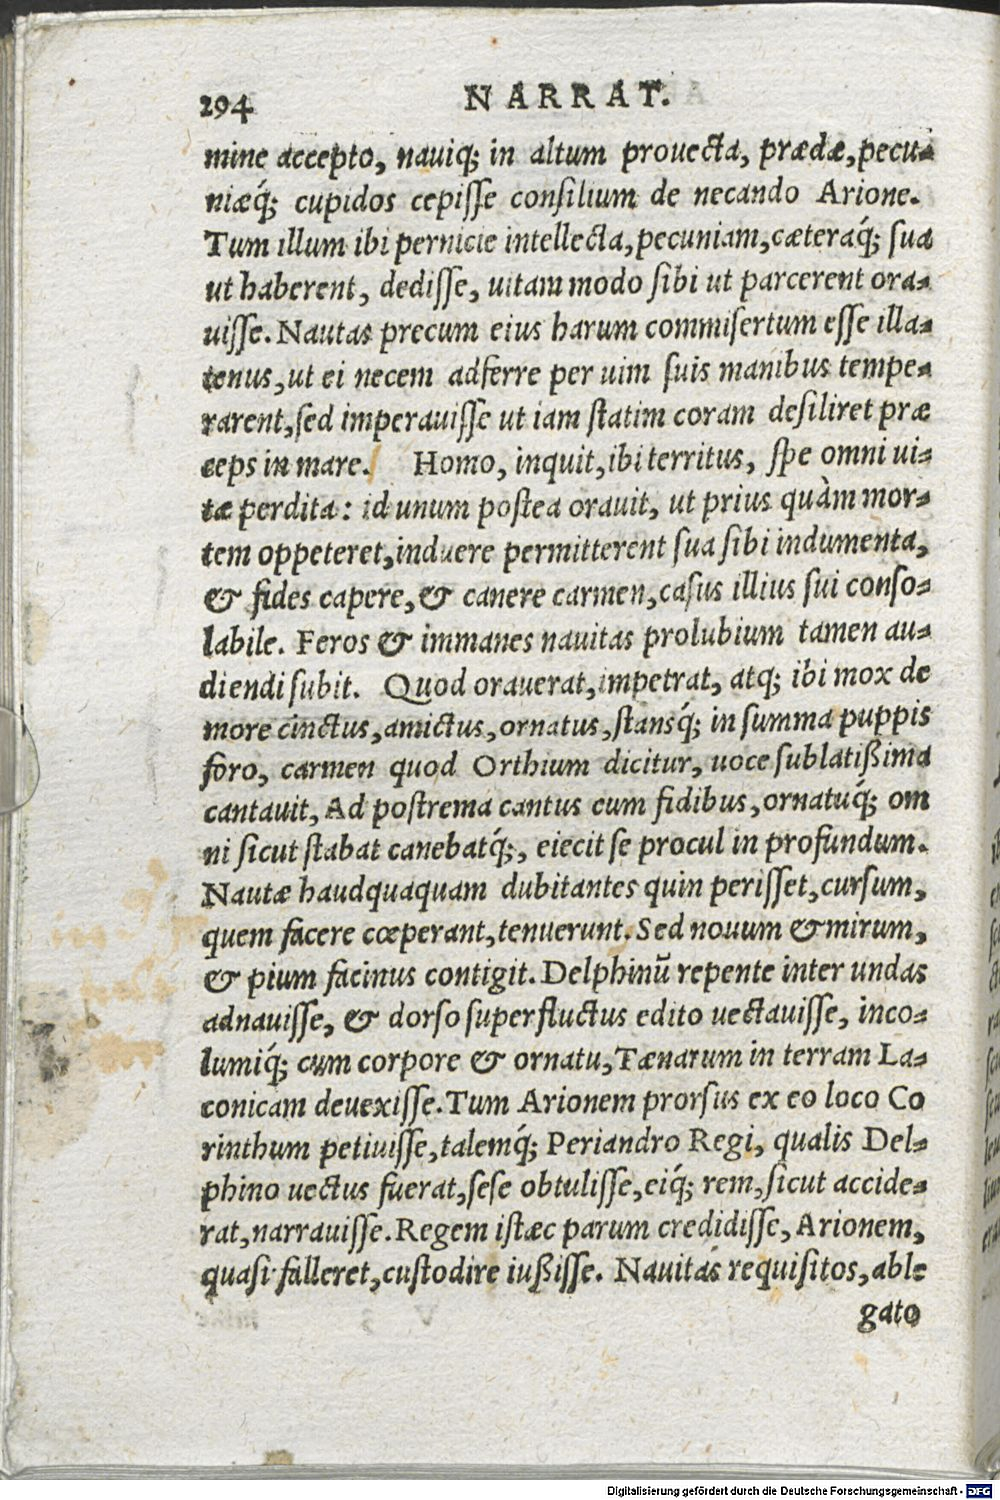 294 NARRAT.
mine accepto, nauiq; in altum prouecta, prædæ, pecu-
niæq́; cupidos cepisse consilium de necando Arione.
Tum illum ibi pernicie intellecta, pecuniam, cæteraq́; sua
ut haberent, dedisse, uitam modo sibi ut parcerent ora-
uisse. Nautas precum eius harum commisertum esse illa-
tenus, ut ei necem adferre per uim suis manibus tempe-
rarent, sed imperauisse ut iam statim coram desiliret præ
ceps in mare. Homo, inquit, ibi territus, spe omni ui-
tæ perdita: id unum postea orauit, ut prius quàm mor-
tem oppeteret, induere permitterent sua sibi indumenta,
& fides capere, & canere carmen, casus illius sui conso-
labile. Feros & immanes nauitas prolubium tamen au-
diendi subit. Quod orauerat, impetrat, atq; ibi mox de
more cinctus, amictus, ornatus, stansq́; in summa puppis
foro, carmen quod Orthium dicitur, uoce sublatißima
cantauit, Ad postrema cantus cum fidibus, ornatuq́; om
ni sicut stabat canebatq́;, eiecit se procul in profundum.
Nautæ haudquaquam dubitantes quin perisset, cursum,
quem facere cœperant, tenuerunt. Sed nouum & mirum,
& pium facinus contigit. Delphinũ repente inter undas
adnauisse, & dorso super fluctus edito uectauisse, inco-
lumiq́; cum corpore & ornatu, Tænarum in terram La-
conicam deuexisse. Tum Arionem prorsus ex eo loco Co
rinthum petiuisse, talemq́; Periandro Regi, qualis Del-
phino uectus fuerat, sese obtulisse, eiq́; rem, sicut accide-
rat, narrauisse. Regem istæc parum credidisse, Arionem,
quasi falleret, custodire iußisse. Nauitas requisitos, able
gato
Digitalisierung gefördert durch die Deutsche Forschungsgemeinschaft - DFG